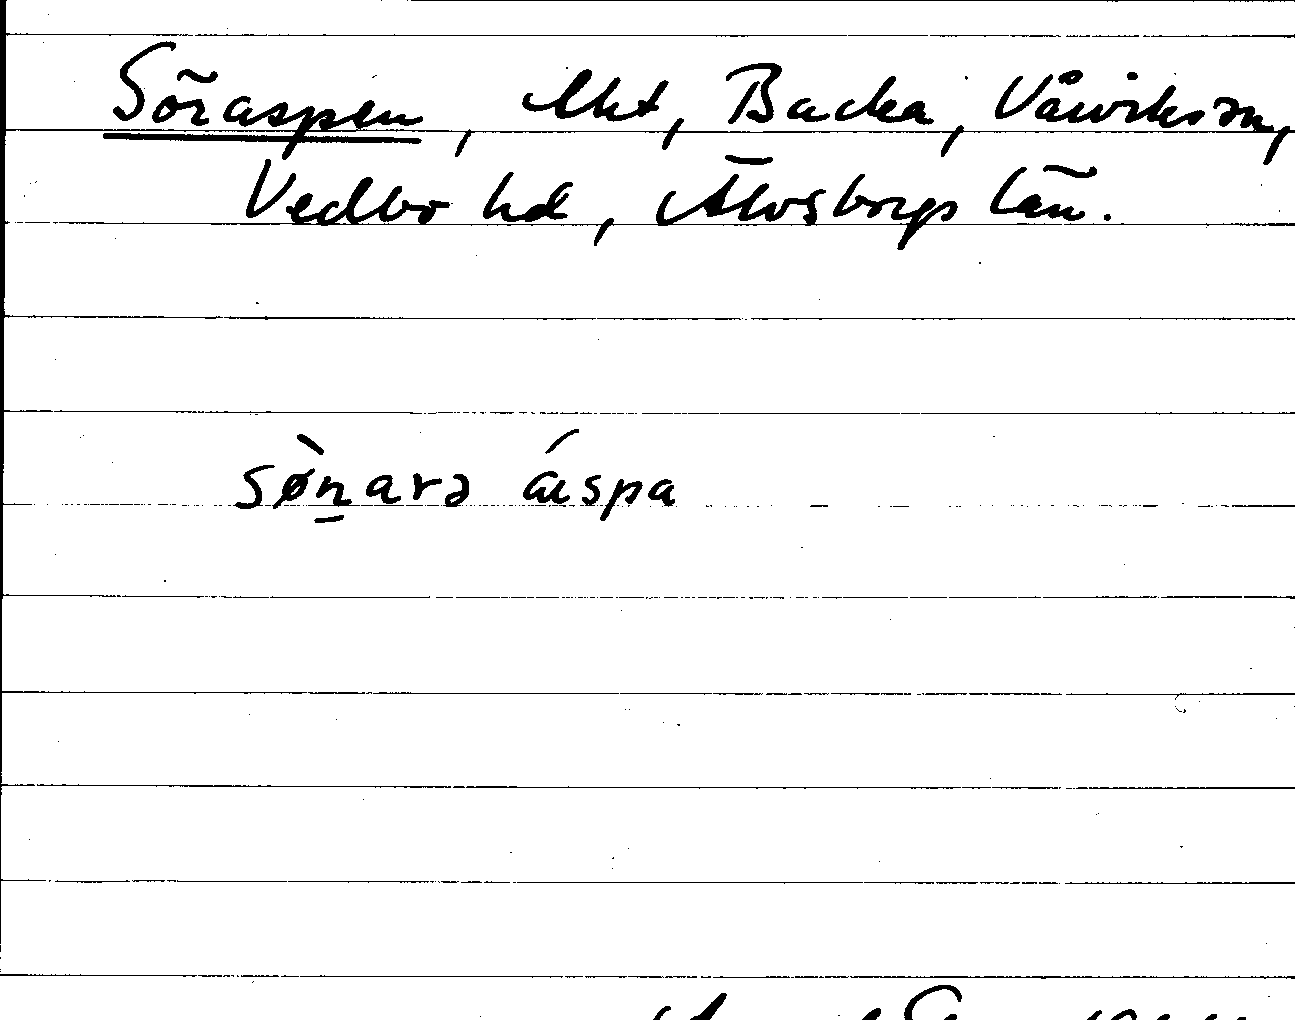 Söraspen, Åkt, Backa, Vårviks sn,
Vedbo hd, Älvsborgs län.
sø̀n̲arə áspa